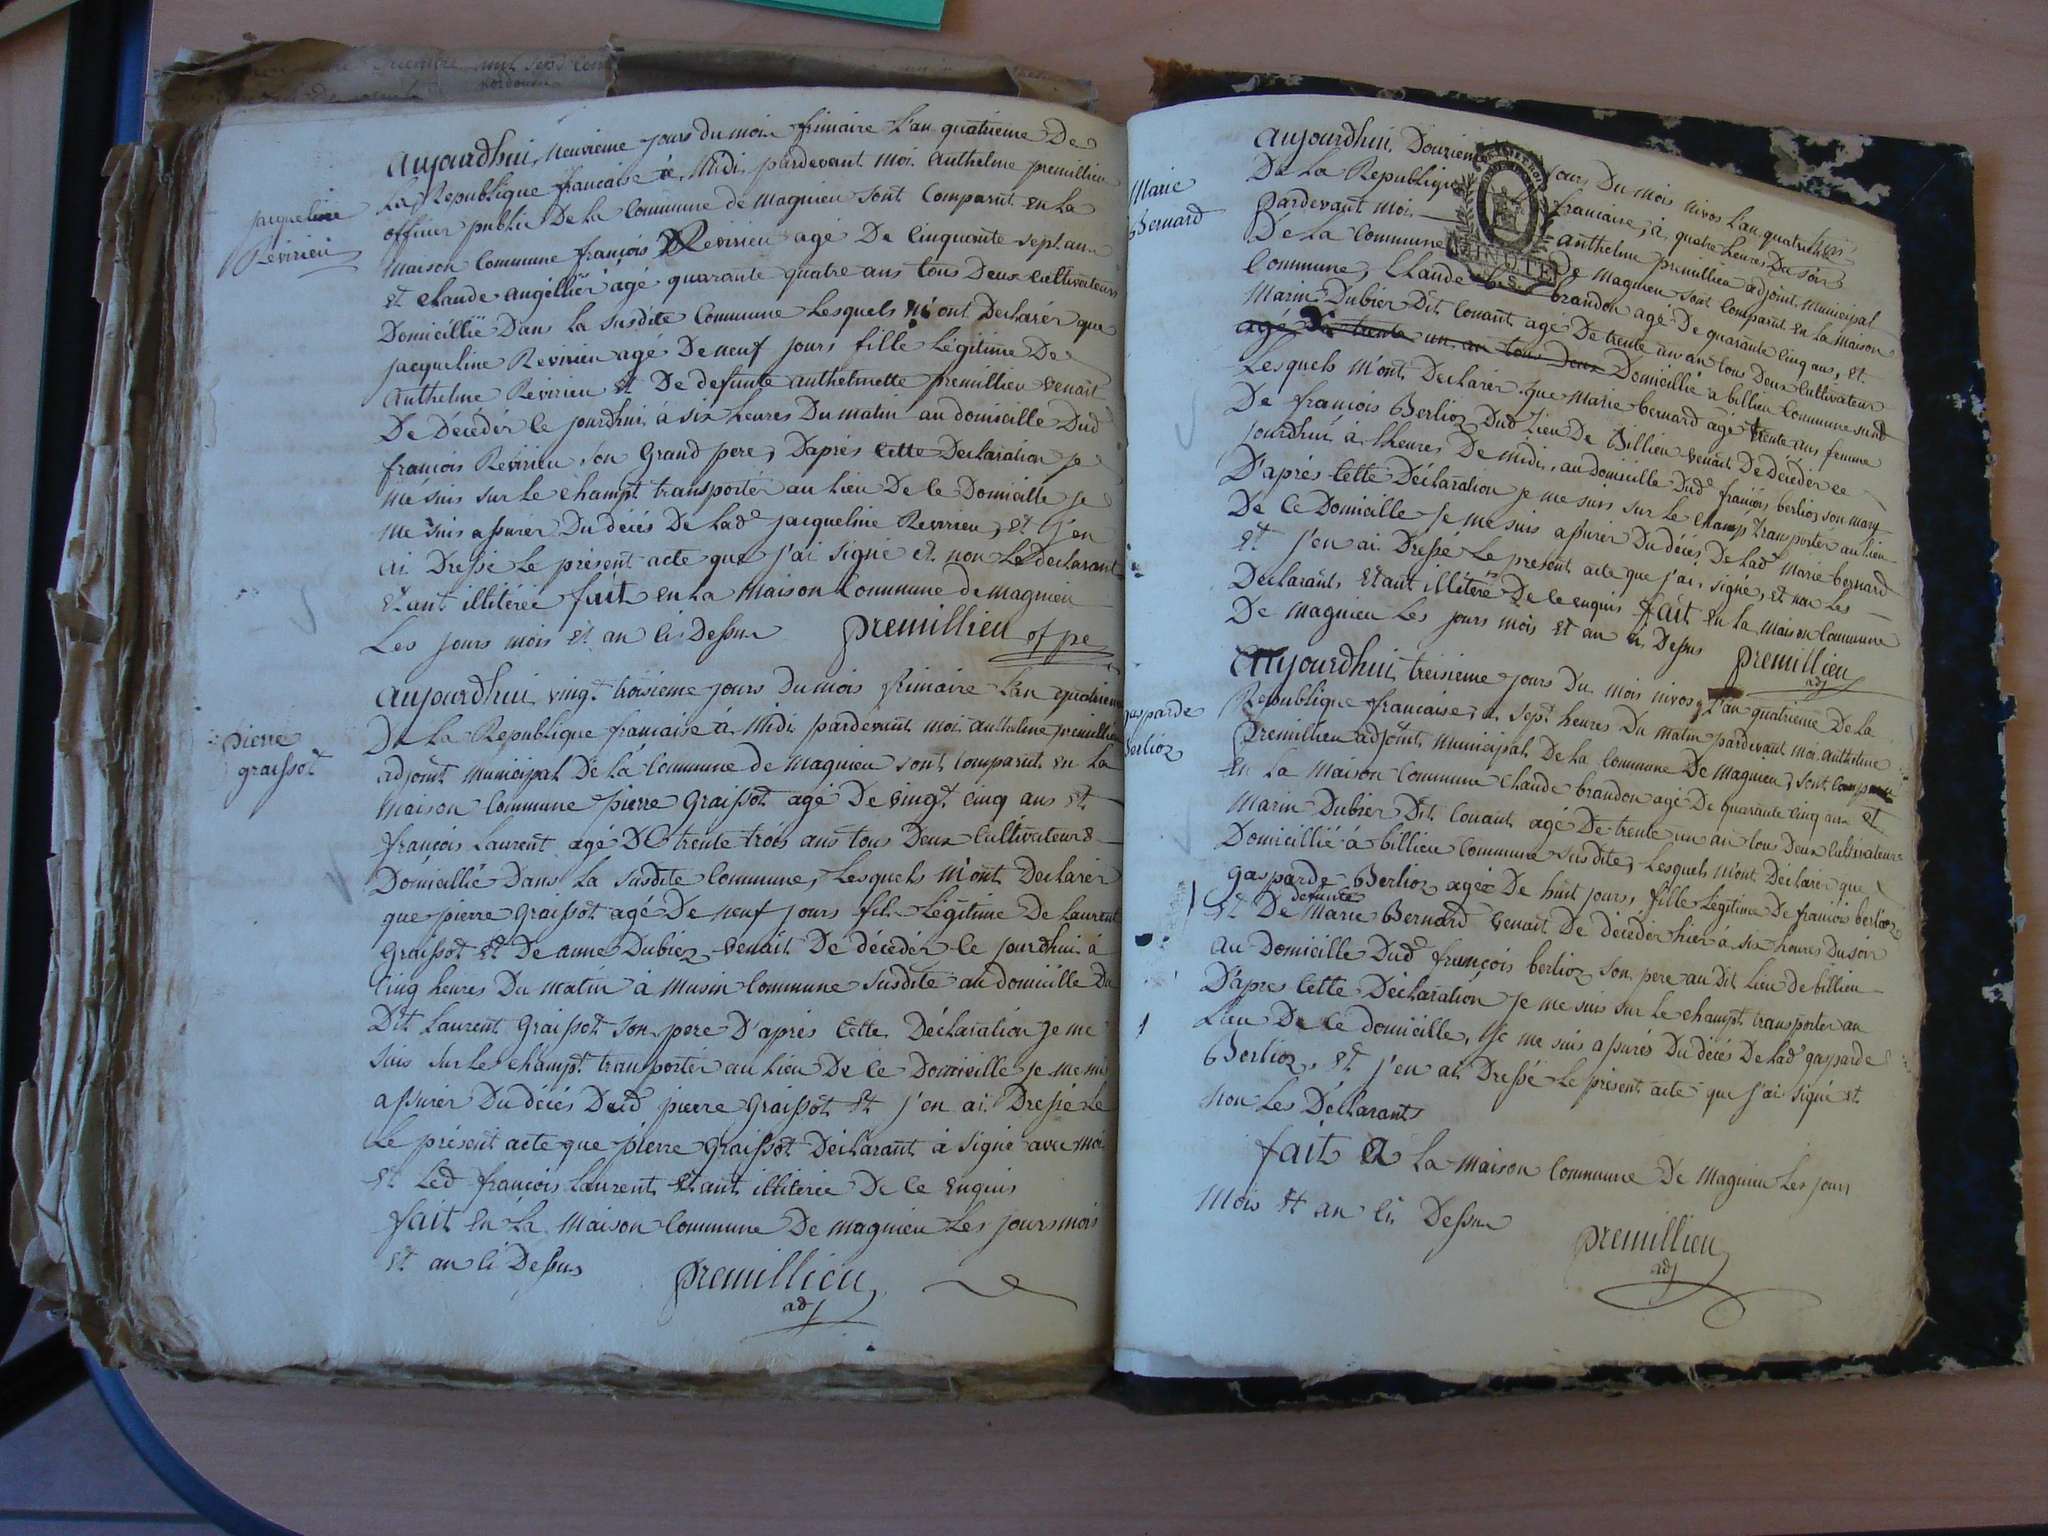 jacqueline
Revirieu
aujourdhui, neuvieme jours du mois frimaire l'an quatrieme De
La Republique francaise à Midi pardevant moi anthelme premillieu
officier public De la Commune de magnieu sont Comparut en la
maison Commune françois Revirieu agé De Cinquante sept ans
et Claude angellier agé quarante quatre ans tous Deux Cultivateurs
Domicillié Dans la susdite Commune Lesquels m'ont Declarér que
jacqueline Revirieu agé De neuf jours fille Légitime De
anthelme Revirieu et De defunte anthelmette premillieu venait
De Décedér Ce jourdhui à six heures Du matin au domicille Dud
francois Revirieu son Grand pere, Daprés Cette Declaration je
mé suis sur Le Champt transportér au lieu De Ce Domicille je
me suis assurér Du décés De Lade jacqueline Revirieu, et j'en
ai Dressé Le présent acte que j'ai Signé et non Le Declarant
Etant illitérée fait en la maison Commune de magnieu
Les jours mois et an Ci Dessus premillieu of pe
pierre
graissot
aujourdhui vingt troisieme jours Du mois frimaire L'an quatrieme
De La Republique francaise à Midi pardevant moi anthelme premillieu
adjoint municipal De La Commune de magnieu sont Comparut en La
maison Commune pierre Graissot agé De vingt Cinq ans et
françois Laurent agé De trente trois ans tous Deux Cultivateurs
Domicillié Dans La susdite Commune, Lesquels m'ont Declarér
que pierre Graissot agé De neuf jours fils Légitime De Laurent
Graissot et De anne Dubiez venait De décedér Ce jourdhui à
Cinq heures Du matin à Musin Commune susdite au domicille Du
Dit Laurent Graissot son pere D'aprés Cette Déclaration je me
suis sur Le Champt transportér au Lieu De Ce Domicille je me suis
assurér Du décés Dud pierre Graissot et j'en ai Dressé Le
Le présent acte que pierre Graissot Déclarant à Signé avec moi
et Led françois Laurent Etant illitérée De Ce Enquis
fait en La Maison Commune De magnieu Les jours mois
et an Ci Dessus premillieu
adj
Marie
Bernard
aujourdhui Douzieme jours Du mois nivos L'an quatrieme
De La Republique francaise, à quatre heures Du soir
pardevant moi anthelme premillieu adjoint municipal
De La Commune De magnieu sont Comparut en La maison
Commune, Claude brandon agé De quarante Cinq ans, et
Marin Dubier Dit Couant agé De trente un an tous Deux Cultivateur
agé De trente un an tous Deux Domicillié a billieu Commune susd
Lesquels m'ont Declarér que Marie bernard agé trente ans femme
De francois Berlioz Dud Lieu De Billieu venait De décedér ce
jourdhui à heures De midi, au domicille Dude francois berlioz son mary
D'aprés Cette Déclaration je me suis sur Le Champ transporter au lieu
De Ce Domicille je me suis assurér Du décés De Lad Marie bernard
et j'en ai Dressé Le present acte que j'ai signé, et non Les
Declarants Etant illitéré De Ce enquis fait en la maison Commune
De magnieu Les jours mois et an ci Dessus premillieu
adj
gasparde
berlioz
aujourdhui treisieme jours Du mois nivos, L'an quatrieme De La
Republique francaise, à sept heures Du matin pardevant moi anthelme
premillieu adjoint municipal De La Commune De Magnieu, sont Comparut
en La maison Commune Claude brandon agé De quarante Cinq ans et
Marin Dubier Dit Couant agé De trente un an tous Deux Cultivateurs
Domicillié à billieu Commune susdite, Lesquels m'ont Déclarér que
gasparde Berlioz agée De huit jours, fille Légitime De francois berlioz
defunte
et De Marie Bernard venait De décedér hier à six heures Du soir
au Domicille Dude françois berlioz son pere au Dit Lieu de billieu
D'apres Cette Déclaration je me suis sur Le Champt transportér au
Lieu De Ce domicille, je me suis assurés Du décés De Lade gasparde
Berlioz, et j'en ai Dressé Le présent acte que j'ai signé et
non Les Déclarants
fait a La maison Commune De Magnieu Les jours
Mois et an Ci Dessus
premillieu
adj